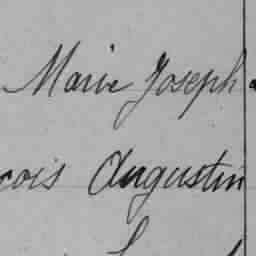 Marie Joseph
çois Augustin